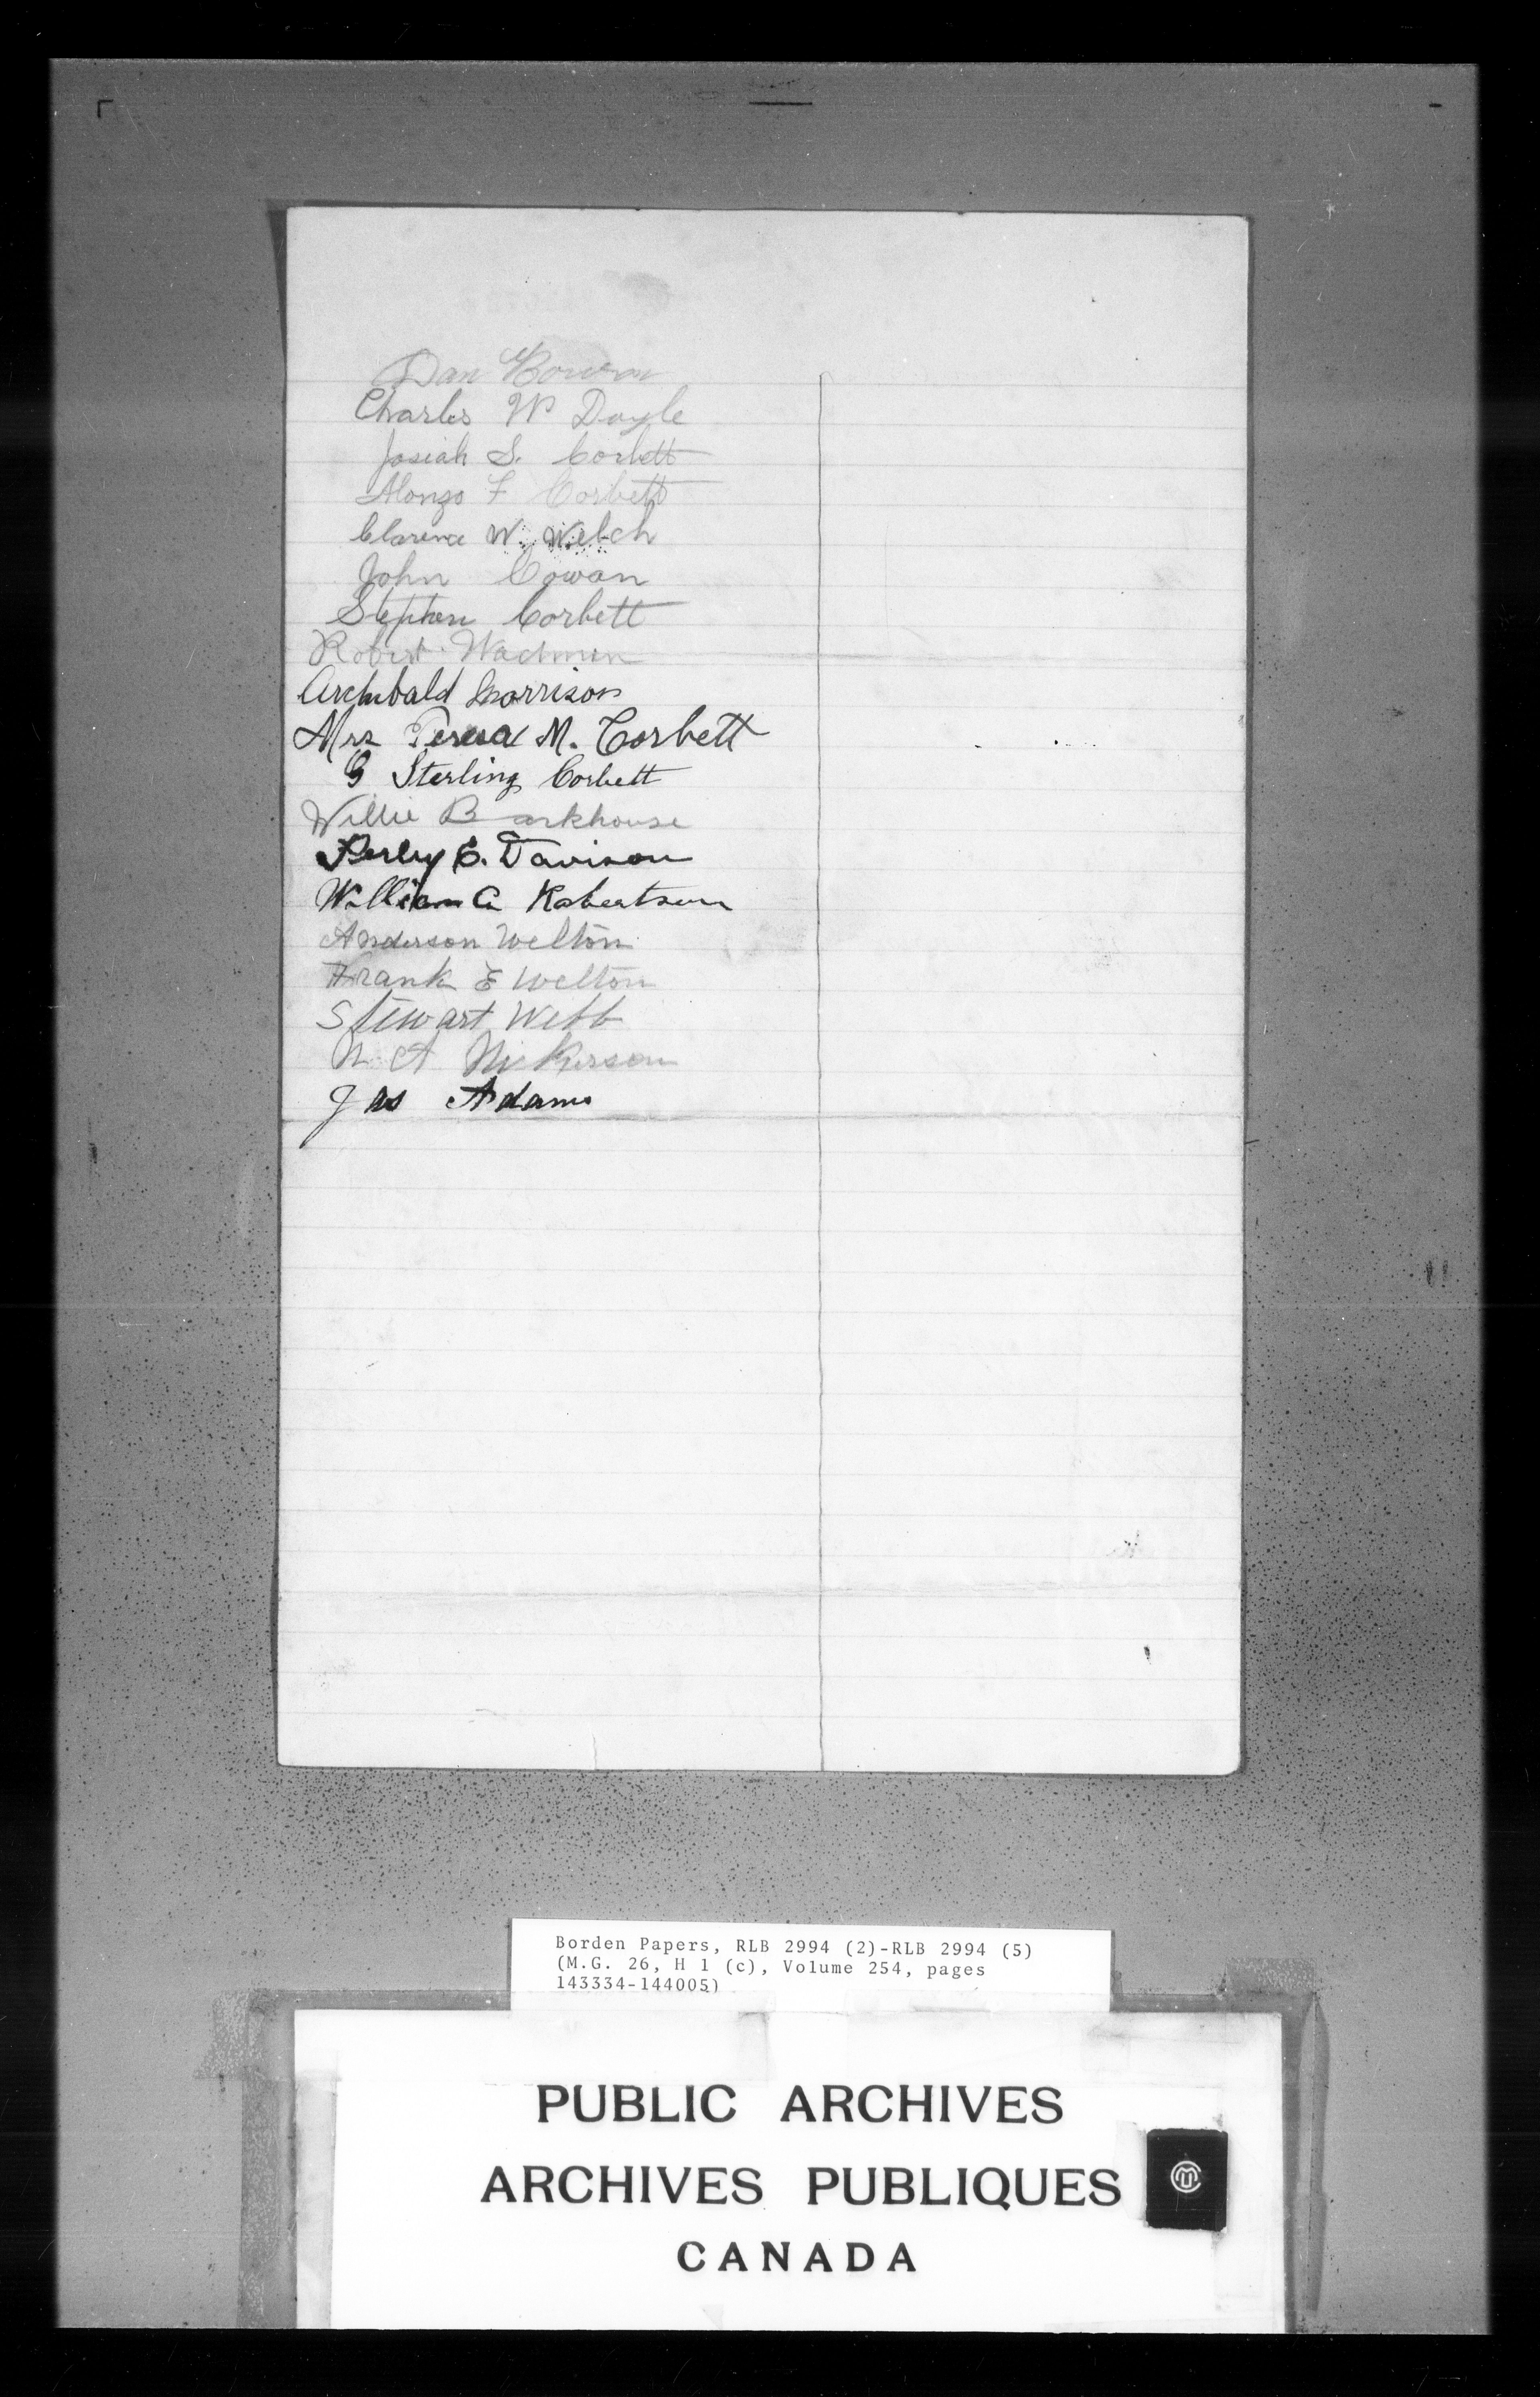 Dan Cowan
Charles W Doyle
Josiah S. Corbett
Alonzo F Corbett
Clarence W. Welch
John Cowan
Stephen Corbett
Robert Wadman
Archibald Morrison
Mrs Teresa M. Corbett
G Sterling Corbett
Willie Barkhouse
Perley E. Davison
William A Robertson
Anderson Welton
Frank E Welton
Stewart Webb
A Nickerson
Jas Adams
Borden Papers, RLB 2994 (2)-RLB 2994 (5)
(M.G. 26, H 1 (c), Volume 254, pages
143334-144005)
PUBLIC ARCHIVES
ARCHIVES PUBLIQUES
CANADA